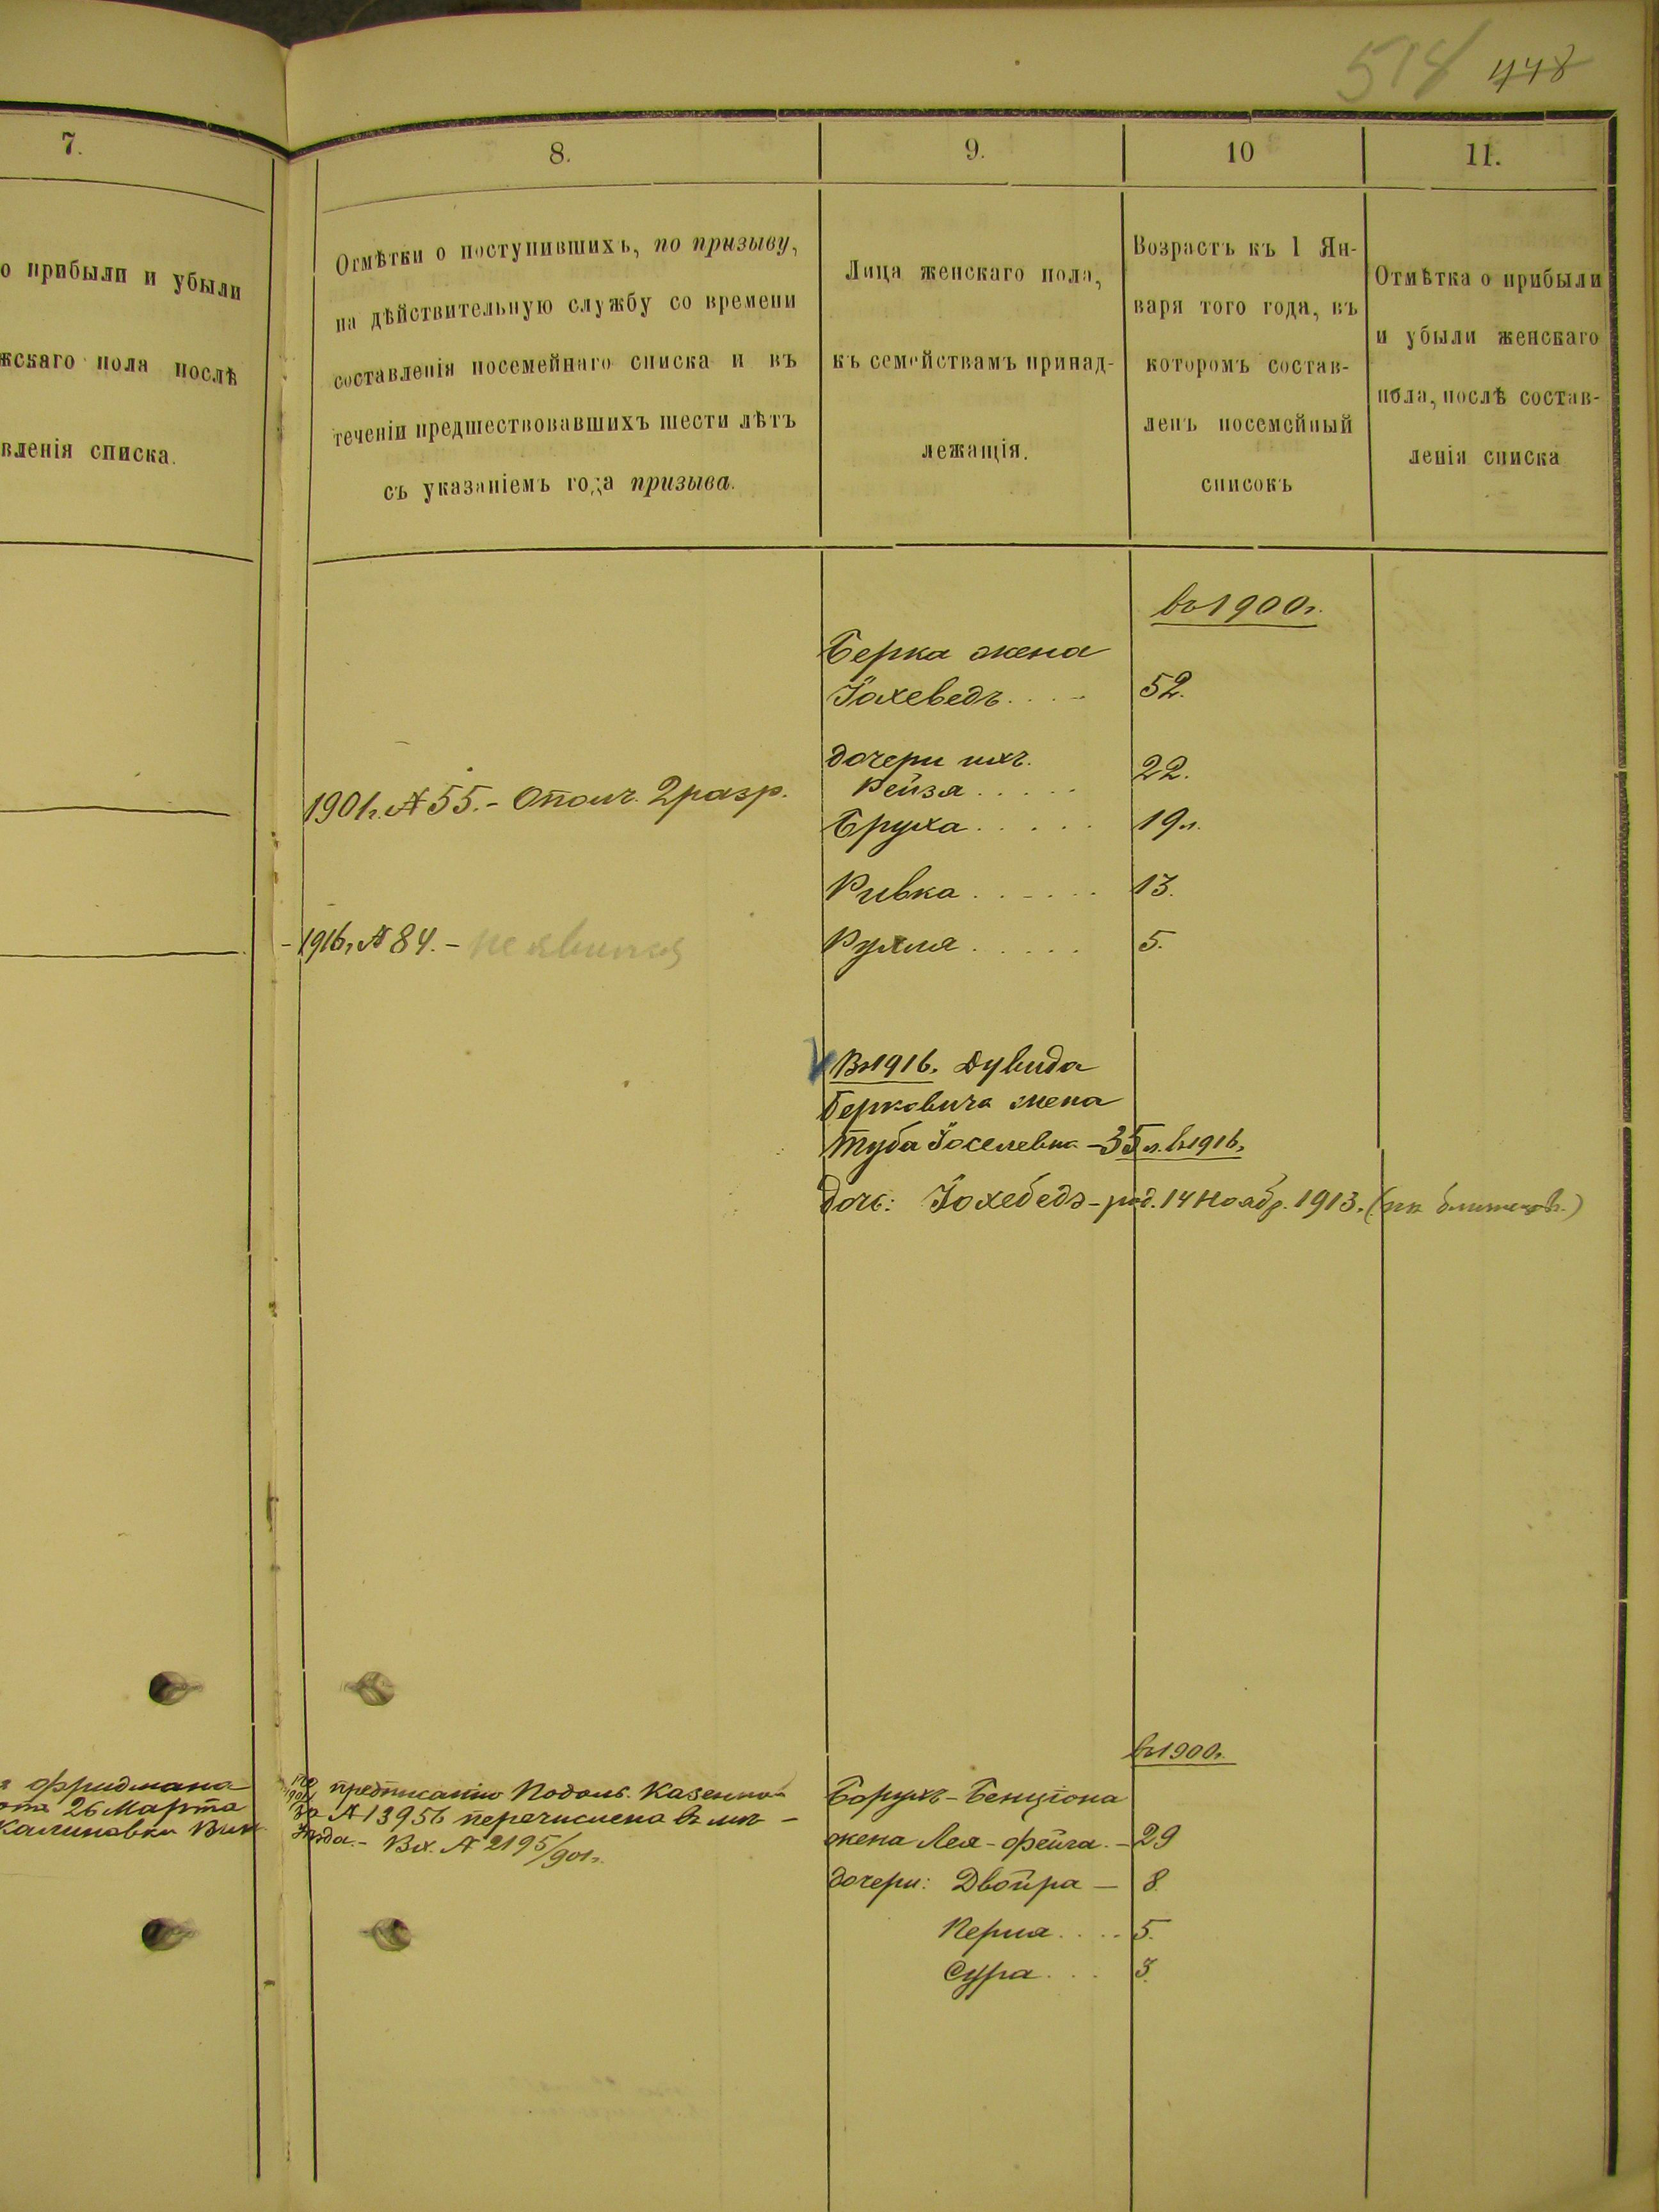 518 448
7.
8.
9.
10
11.
о прибыли и убыли
жскаго пола послѣ
вленія списка.
Отмѣтки о поступившихъ, по призыву,
на дѣйствительную службу со времени
составленія посемейнаго списка и въ
теченіи предшествовавшихъ шести лѣтъ
съ указаніемъ года призыва.
Лица женскаго пола,
къ семействамъ принад-
лежащія.
Возрастъ къ 1 Ян-
варя того года, въ
которомъ состав-
ленъ посемейный
списокъ
Отмѣтка о прибыли
и убыли женскаго
пола, послѣ состав-
ленія списка
въ 1900г.
Берка жена
Іохеведъ.... 52.
дочери ихъ.
Рейзя..... 22.
1901г. № 55.- Ополч. 2 разр.
Бруха..... 19л.
Ривка...... 13.
- 1916г. № 84. - не явился
Рухля..... 5.
Въ 1916г. Дувида
Берковича жена
Туба Іоселевна - 35 л. въ 1916г.
дочь: Іохебедъ - род. 14 Ноябр. 1913г.
въ 1900г.
Фридмана
26 Марта
Калиновки Вин
По предписанію Подоль. Казенно-
за № 13956 перечислена въ
уѣзда.- Вх. № 2195/901г.
Борухъ-Бенціона
жена Лея-Фейга.- 29
дочери: Двойра - 8.
Перля.... 5.
Сура... 3.